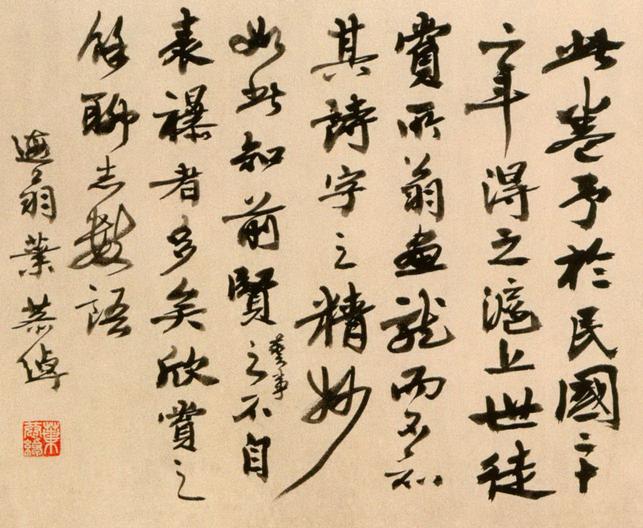 此卷予於民國二十
二年得之滬上世徒
賞所翁畫龍而不知
其詩字之精妙
如此知前賢藝事之不自
表襮者多矣欣賞之
餘聊志數語
遐翁葉恭綽
葉恭綽